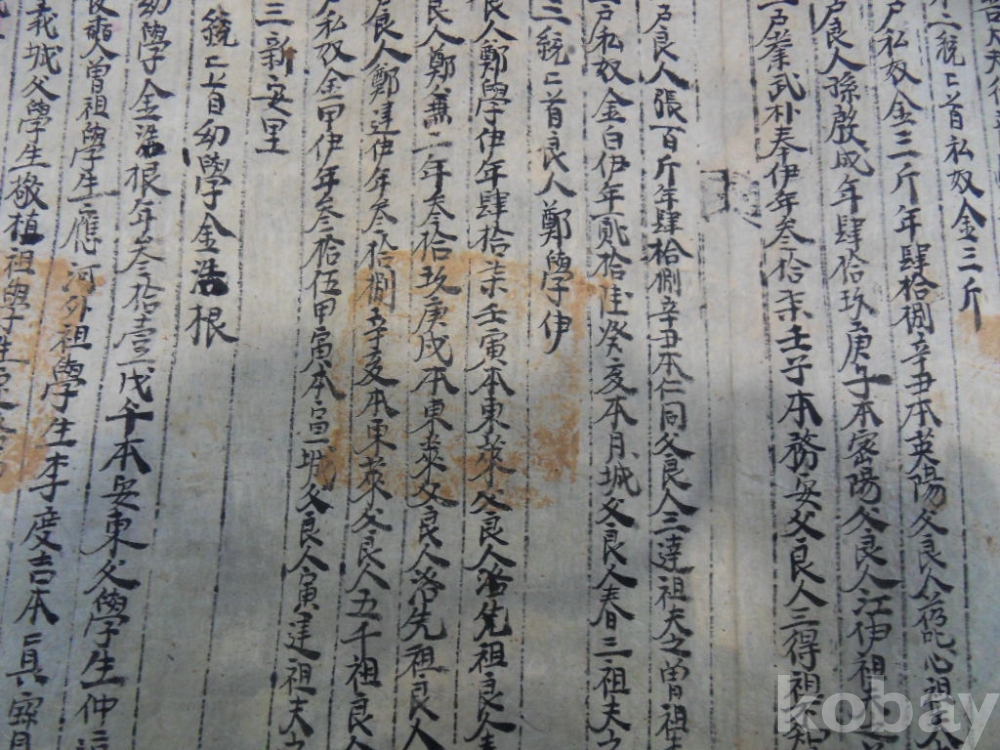 二統上首私奴金三斤
戶私奴金三斤年肆拾捌辛丑本英陽父良人 心祖
戶良人孫啟成年肆拾玖庚子本密陽父良人江伊祖夫之
戶 武朴奉伊年叁拾柒壬子本務安父良人三得祖不知
戶良人張百斤年肆拾捌辛丑本仁同父良人三達祖夫之曽祖
戶私奴金白伊年貳拾 癸亥本月城父良人春三祖夫
三統上首良人鄭學伊
良人鄭學伊年肆拾柒壬寅本東萊父良人洛先祖良人
良人鄭兼二年叁拾玖庚戌本東萊父良人洛先祖良人
良人鄭達伊年叁拾捌辛亥本東萊父良人五千祖良
戶私奴金甲伊年叁拾伍甲寅本 城父良人寅達祖夫之
三新安里
統上首幼學金浩根
幼學金浩根年叁拾壹戊午本安東父學生仲
曽祖學生應河外祖學生李度吉本真寶
義城父學生敬植祖學
kobay